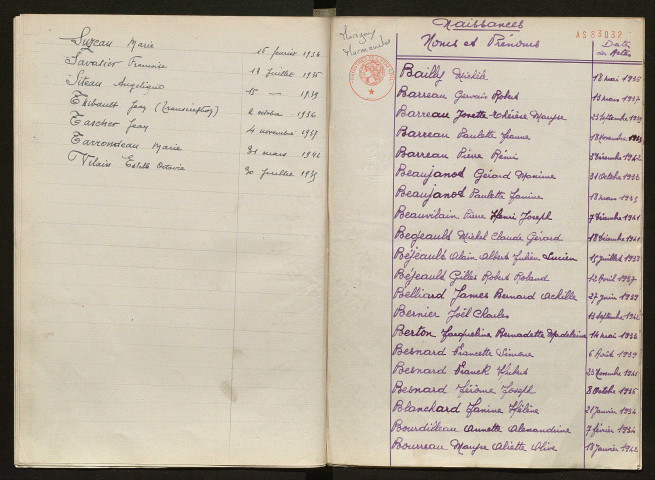 Suzeau Marie 15 février 1936
Savatier Francoise 18 juillet 1935
Siteau Angélique 15 — 1939
Thibault Jean (transcription) 2 octobre 1936
Tascher Jean 4 novembre 1937
Tarrondeau Marie 31 mars 1942
Vilain Estelle Octavie 30 juillet 1939
Marigny Marmande
Naissances
AS 83032
Noms et Prénoms Dates des Actes
Bailly Michèle 18 mai 1935
Barreau Gervais Robert 13 mars 1937
Barreau Josette Thérèse 23 septembre
Barreau Paulette Jeanne 18 novembre
Barreau Pierre Rémi 5 décembre 1942
Beaujanot Gérard Maxime 31 octobre
Beaujanot Paulette Janine 18 mars
Beauvilain Pierre Henri Joseph 7 décembre 1941
Begeault Michel Claude Gérard 18 décembre 1941
Béjeault Alain Albert Julien Lucien 15 juillet
Béjeault Gilles Robert Roland 12 avril 1937
Belliard James Bernard Achille 27 juin 1939
Bernier Joël Charles 13 septembre
Berton Jacqueline Bernadette Madeleine 14 mai
Besnard Francette Simone 6 août 1939
Besnard Franck Hubert 25 novembre
Besnard Jérôme Joseph 8 octobre 1935
Blanchard Janine Hélène 21 janvier 1934
Bourdilleau Annette Alexandrine 7 février 1934
Bourreau Aliette Olive 18 janvier 1942